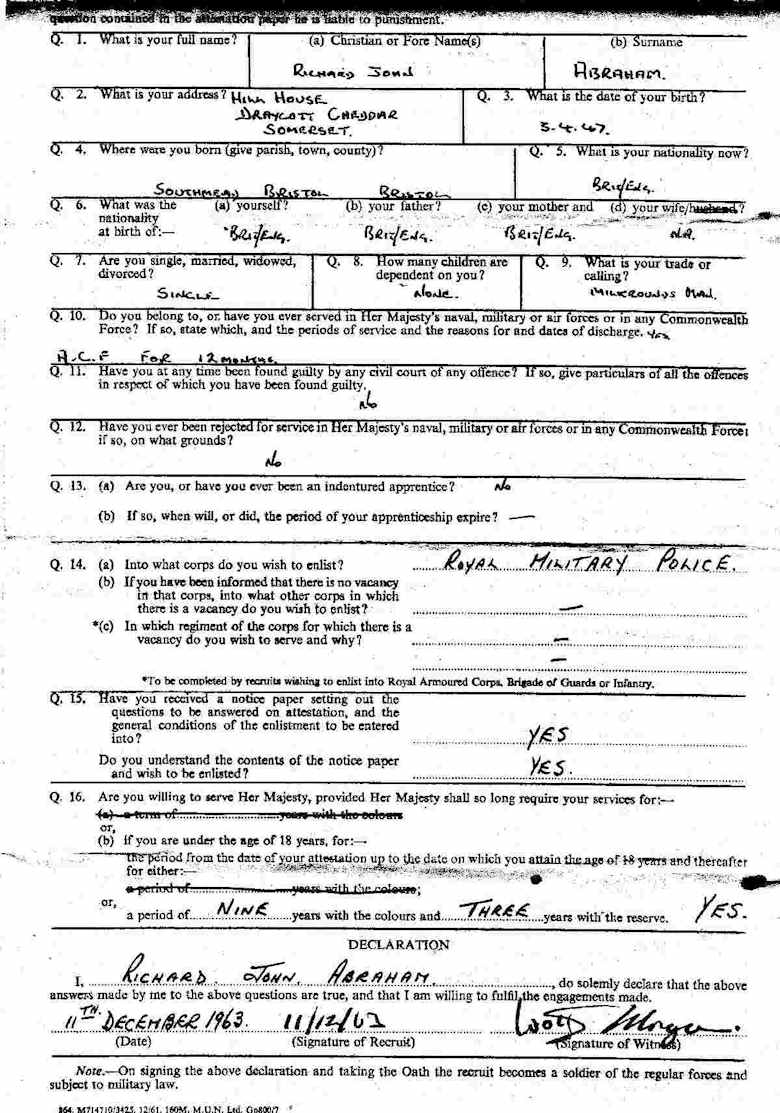 question contained in the attestation paper he is liable to punishment.
Q. 1. What is your full name? (a) Christian or Fore Name(s) (b) Surname
RICHARD JOHN ABRAHAM.
Q. 2. What is your address? HILL HOUSE Q. 3. What is the date of your birth?
DRAYCOTT CHEDDAR
SOMERSET. 5.4.47.
Q. 4. Where were you born (give parish, town, county)? Q. 5. What is your nationality now?
SOUTHMEAD BRISTOL BRISTOL BRIT/ENG.
Q. 6. What was the (a) yourself? (b) your father? (c) your mother and (d) your wife/husband?
nationality
at birth of:— BRIT/ENG. BRIT/ENG. BRIT/ENG. N.A.
Q. 7. Are you single, married, widowed, Q. 8. How many children are Q. 9. What is your trade or
divorced? dependent on you? calling?
SINGLE NONE. MILKROUNDS MAN.
Q. 10. Do you belong to, or have you ever served in Her Majesty's naval, military or air forces or in any Commonwealth
Force? If so, state which, and the periods of service and the reasons for and dates of discharge. YES
A.C.F FOR 12 MONTHS.
Q. 11. Have you at any time been found guilty by any civil court of any offence? If so, give particulars of all the offences
in respect of which you have been found guilty.
No
Q. 12. Have you ever been rejected for service in Her Majesty's naval, military or air forces or in any Commonwealth Force;
if so, on what grounds?
No
Q. 13. (a) Are you, or have you ever been an indentured apprentice? No
(b) If so, when will, or did, the period of your apprenticeship expire? —
Q. 14. (a) Into what corps do you wish to enlist? ROYAL MILITARY POLICE.
(b) If you have been informed that there is no vacancy
in that corps, into what other corps in which
there is a vacancy do you wish to enlist? —
*(c) In which regiment of the corps for which there is a
vacancy do you wish to serve and why? —
—
*To be completed by recruits wishing to enlist into Royal Armoured Corps, Brigade of Guards or Infantry.
Q. 15. Have you received a notice paper setting out the
questions to be answered on attestation, and the
general conditions of the enlistment to be entered
into? YES
Do you understand the contents of the notice paper
and wish to be enlisted? YES.
Q. 16. Are you willing to serve Her Majesty, provided Her Majesty shall so long require your services for:—
(a) a term of years with the colours
or,
(b) if you are under the age of 18 years, for:—
the period from the date of your attestation up to the date on which you attain the age of 18 years and thereafter
for either:—
a period of years with the colours;
or,
a period of NINE years with the colours and THREE years with the reserve. YES.
DECLARATION
I, RICHARD JOHN ABRAHAM, do solemnly declare that the above
answers made by me to the above questions are true, and that I am willing to fulfil the engagements made.
11TH DECEMBER 1963. 11/12/63
(Date) (Signature of Recruit) (Signature of Witness)
Note.—On signing the above declaration and taking the Oath the recruit becomes a soldier of the regular forces and
subject to military law.
864. M714710/3425. 12/61. 160M. M.U.N. Ltd. Gp800/7